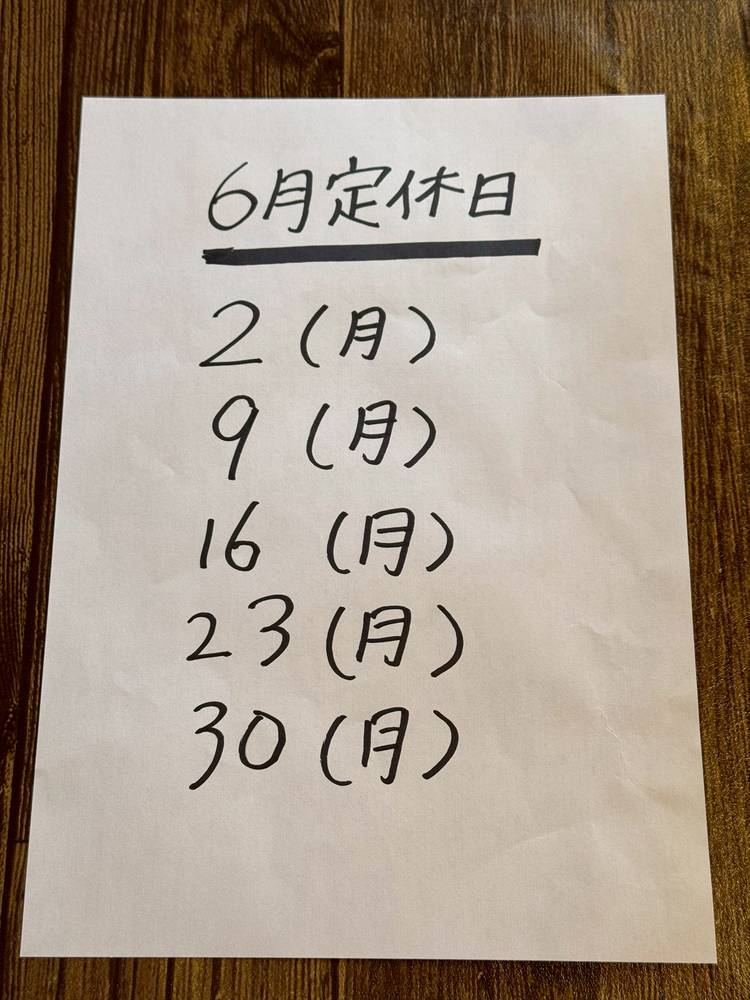 6月定休日
2（月）
9（月）
16（月）
23（月）
30（月）